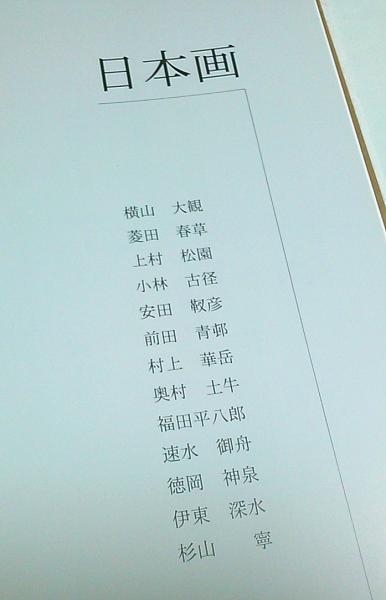 日本画
横山　大観
菱田　春草
上村　松園
小林　古径
安田　靫彦
前田　青邨
村上　華岳
奥村　土牛
福田平八郎
速水　御舟
徳岡　神泉
伊東　深水
杉山　　寧